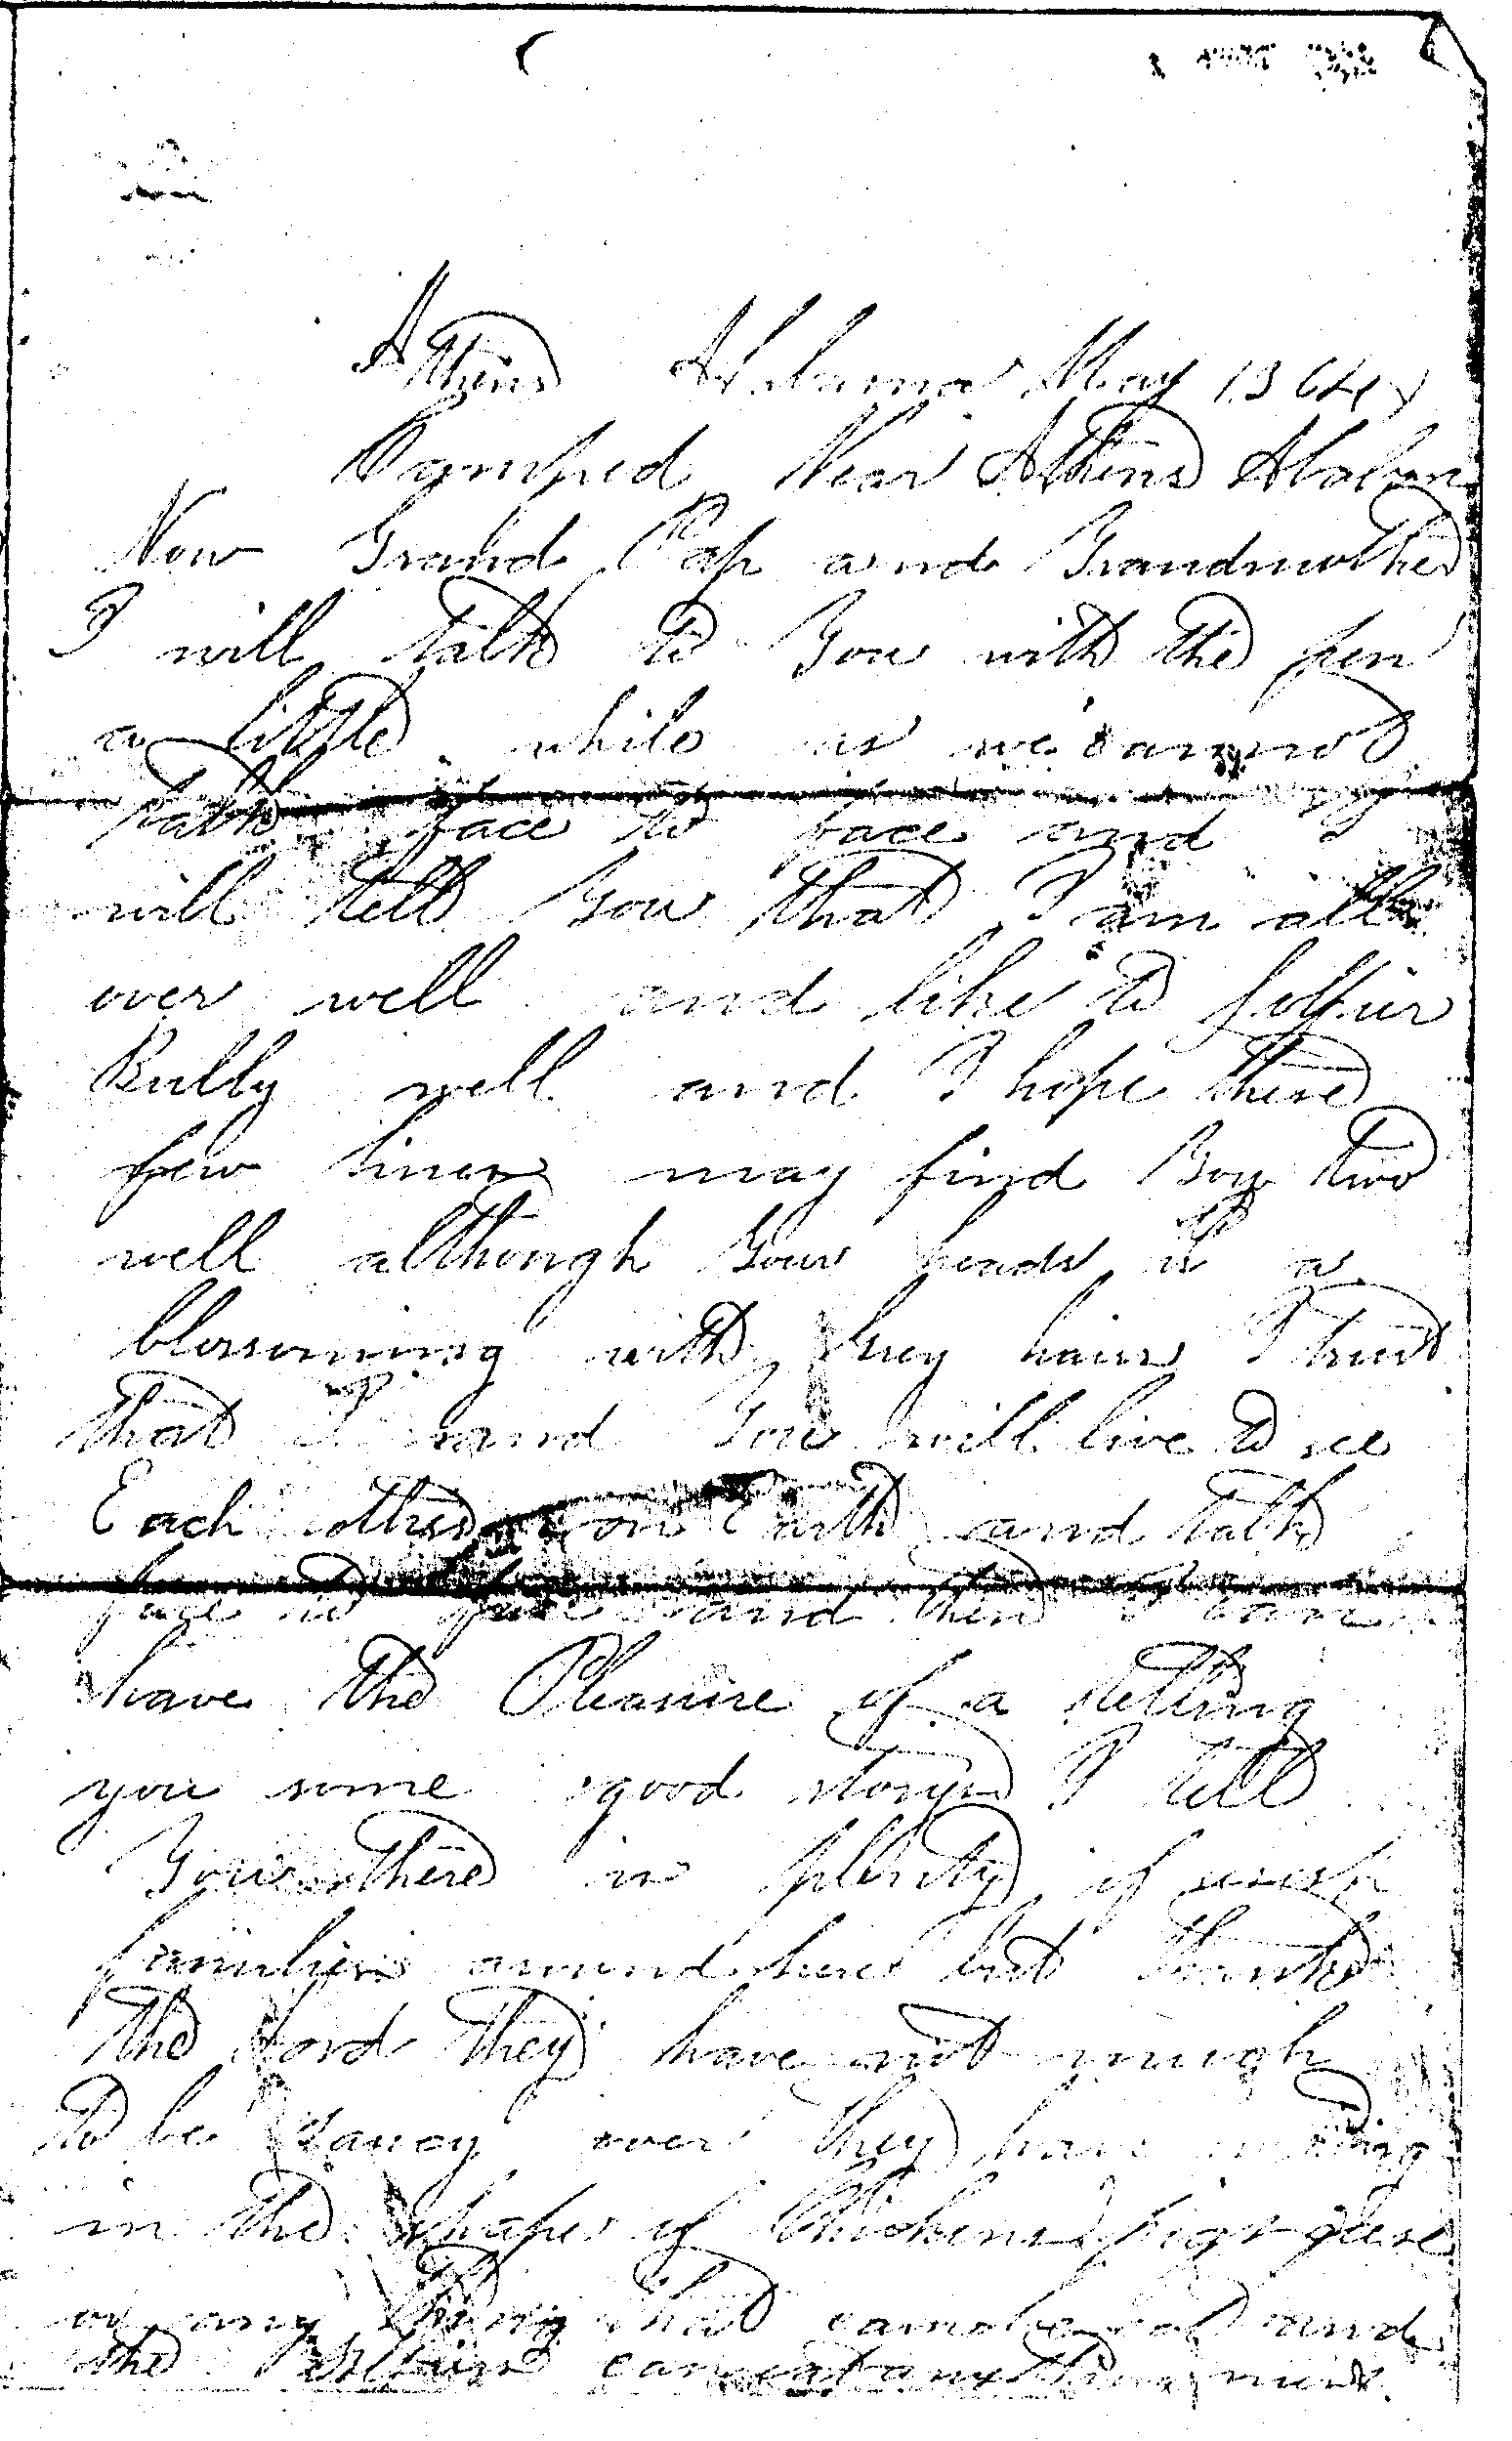 Athens Alabama May 1864
Camped Near Athens Alabam
Now Grand Pap and Grandmother
I will talk to You with the pen
a little while as we cannot
talk face to face and I
will tell You that I am all
over well and like to
Bully well and I hope these
few lines may find You two
well although Your heads is a
blossoming with grey hairs I trust
that I and You will live to see
Each other on Earth and talk
face to face and then I can
have the Pleasure of a telling
you some good storys I tell
You there is plenty of
families around here but thanks
the Lord they have not enough
to be saucy over they have nothing
in the shape of Chickens pigs geese
or any thing that can be eat and
the can eat any thing